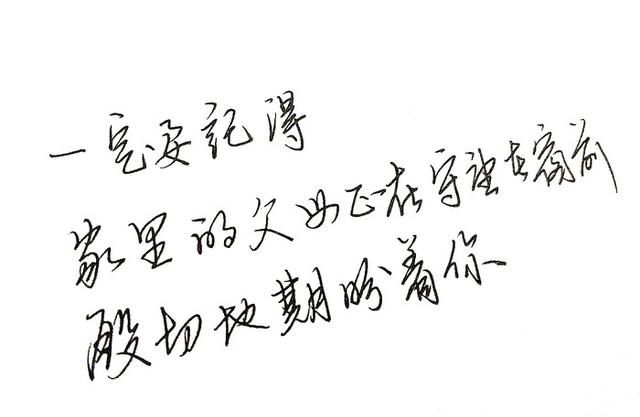 一定要记得
家里的父母正在守望在窗前
殷切地期盼着你